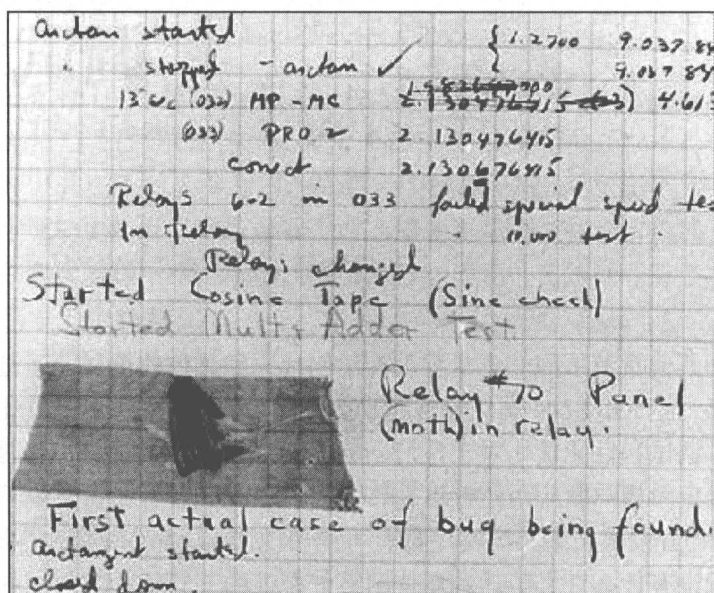 arctan started
" stopped - arctan ✓
{ 1.2700 9.037 84
9.037 84
1.982647000
13"uc (032) MP - MC 2.130476415 4.615
(033) PRO 2 2.130476415
correct 2.130676415
Relays 6-2 in 033 failed special speed tes
In Relay 10,000 test.
Relays changed
Started Cosine Tape (Sine check)
Started Mult + Adder Test.
Relay #70 Panel
(moth) in relay.
First actual case of bug being found.
arctangent started.
closed down.